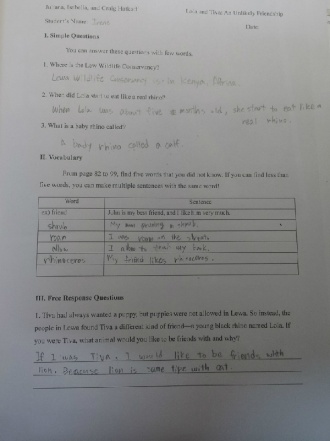 Juliana, Isabella, and Craig Hatkoff
Lola and Tiva: An Unlikely Friendship
Student's Name:
Date:
I. Simple Questions
You can answer these questions with few words.
1. Where is the Lewa Wildlife Conservancy?
Lewa Wildlife Conservancy is in Kenya, Africa.
2. What did Lola start to eat like a real rhino?
When Lola was about five months old, she start to eat like a
real rhino.
3. What is a baby rhino called?
a baby rhino called a calf.
II. Vocabulary
From page 82 to 99, find five words that you did not know. If you can find less than
five words, you can make multiple sentences with the same word!
Word Sentence
is my best friend, and I like him very much.
My
roam I was roam in the
allow I allow to my book.
rhinoceros My friend likes rhinoceros.
III. Free Response Questions
1. Tiva had always wanted a puppy, but puppies were not allowed in Lewa. So instead, the
people in Lewa found Tiva a different kind of friend—a young black rhino named Lola. If
you were Tiva, what animal would you like to be friends with and why?
If I was Tiva, I would like to be friends with
lion. Because lion is same type with cat.